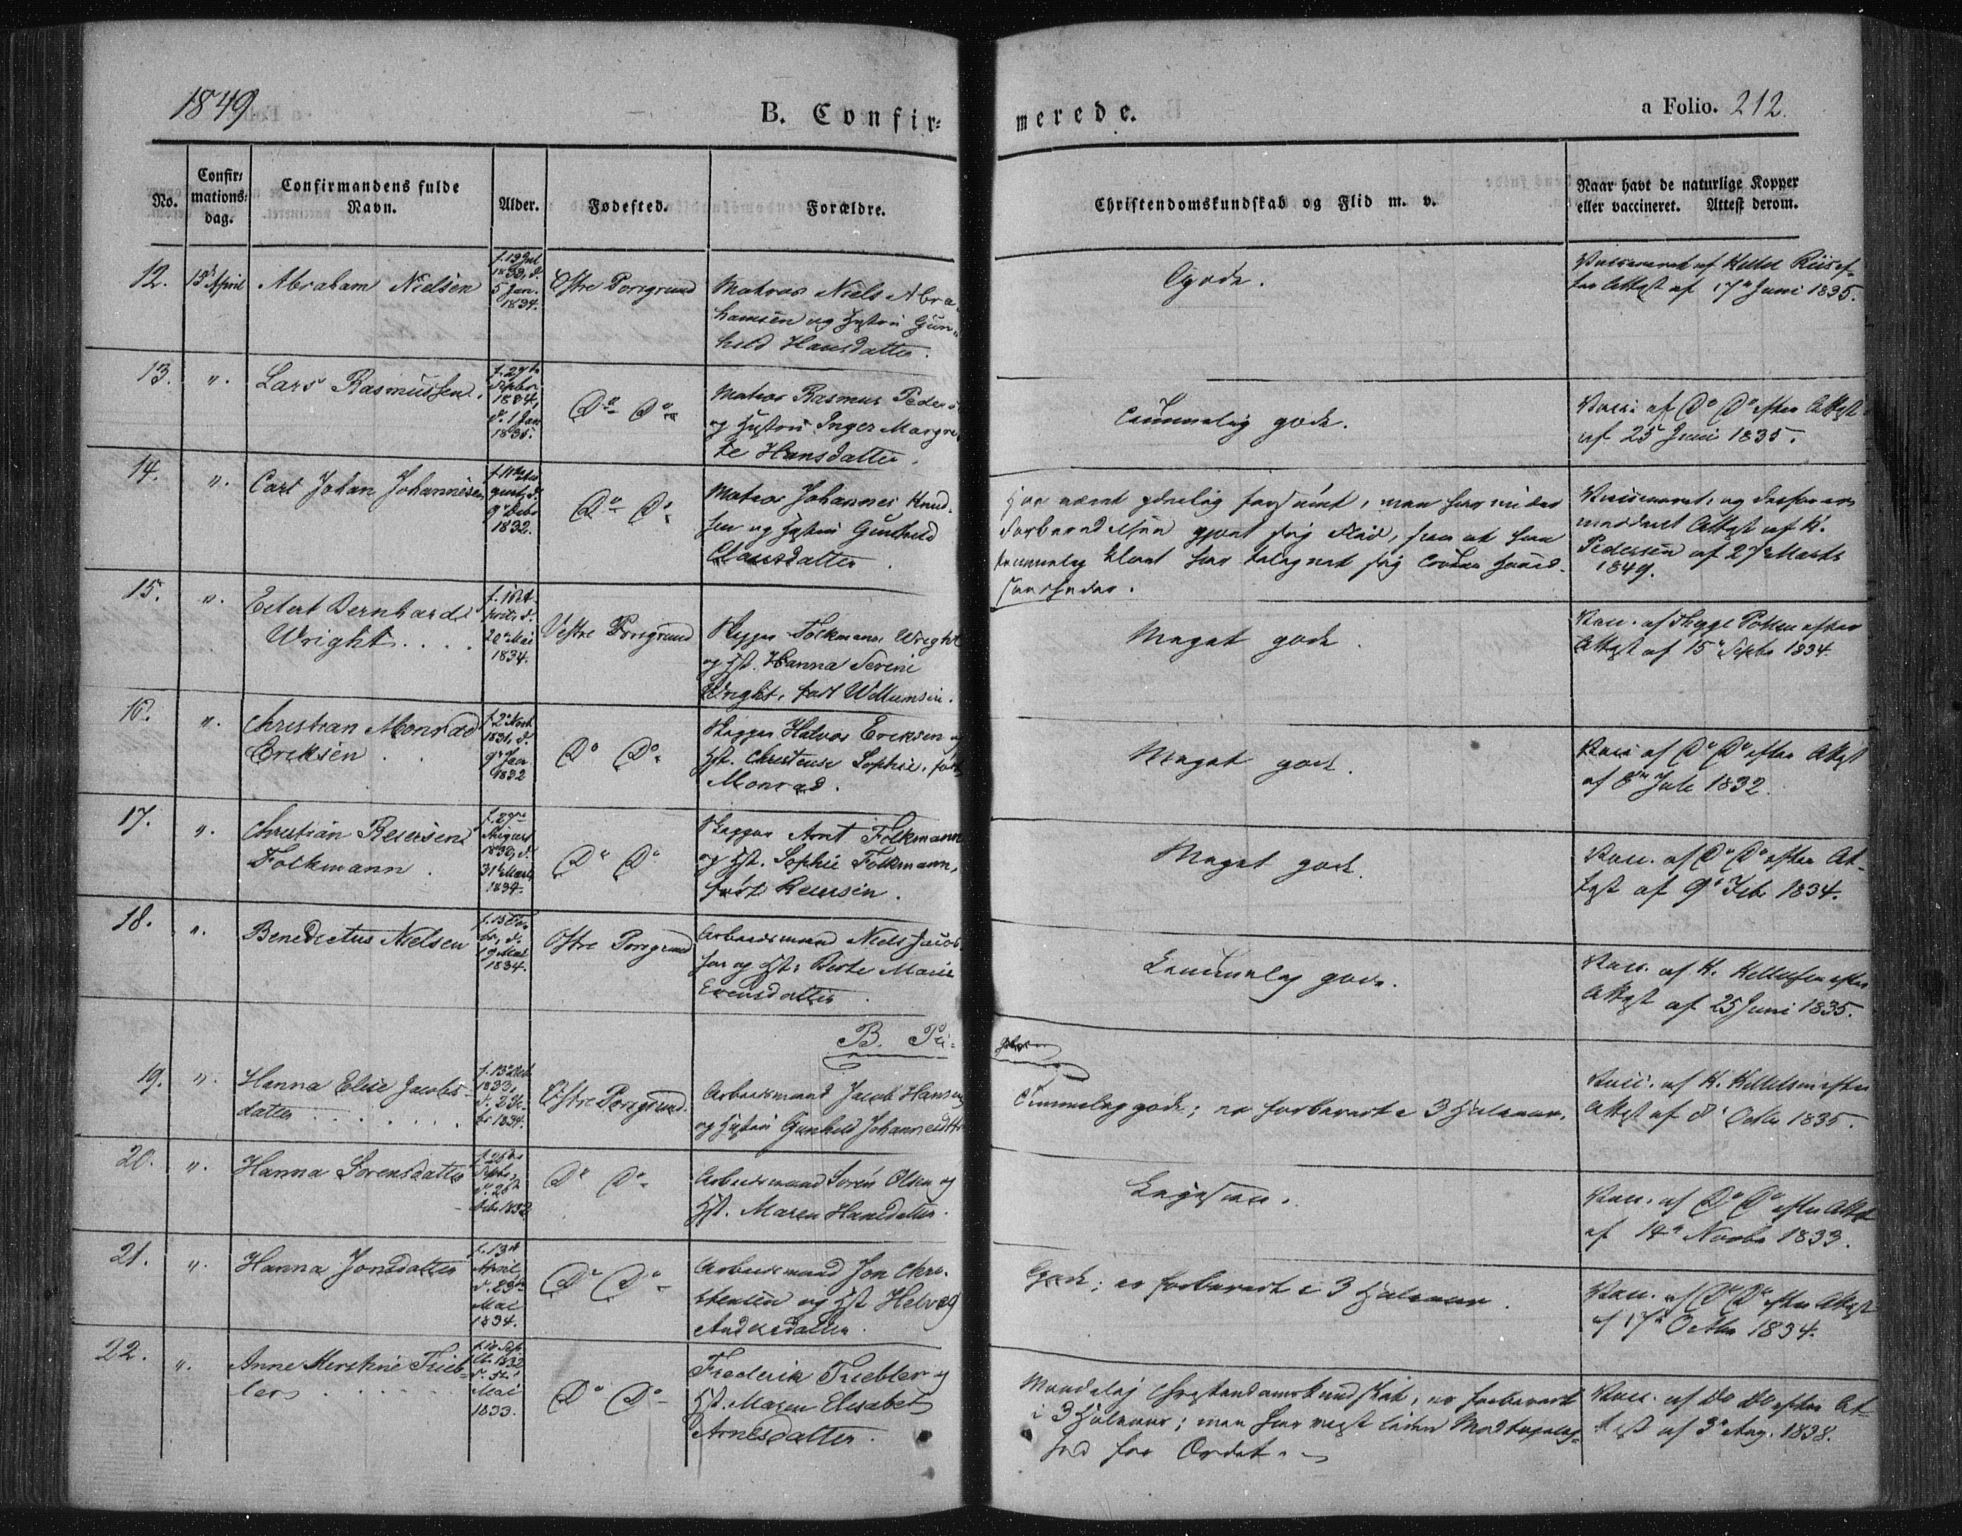 1849
B. Confir=
merede.
a Folio. 212.
No.
Confir=
mations=
dag.
Confirmandens fulde
Navn.
Alder.
Fødested.
Forældre.
Christendomskundskab og Flid m. v.
Naar havt de naturlige Kopper
eller vaccineret. Attest derom.
12. April Abraham Nielsen
5 Jan.
1834.
Østre Porsgrund
Matros Niels Abra
hamsen og Hustru Gun-
hild Hansdatter.
Gode.
Vaccineret af Kittel Riis ef-
ter Attest af 17de Juni 1835.
13. ". Lars Rasmussen,
1834,
d. 1 Jan
1835.
Do Do
Matros Rasmus Peders
og Hustru Inger Margre
te Hansdatter.
Temmelig gode.
Vacc. af Do Do efter Attest
af 25 Juni 1835.
14. ". Carl Johan Johannesen
1832.
Do Do
Matros Johannes Knud-
sen og Hustru Gunhild
Clausdatter.
har været forsømt, men har under
Forberedelsen gjort sig Flid, saa at han
temmelig klart har tilegnet sig Troens Hoved-
sandheder.
Vaccineret, og derfor er
meddeelt Attest af K.
Pedersen af 27 Marts
1849.
15. ". Eilert Bernhard
Wright . . . .
20de Mai
1834.
Vestre Porsgrund
Skipper Folkmann Wright
og Hst. Hanna Serine
Wright, født Willumsen.
Meget gode.
Vacc. af Thyge Polsen efter
Attest af 15 Septbr 1834.
16. ". Christian Monrad
Eriksen . .
1831, d.
9de Jan
1832
Do Do
Skipper Halvor Eriksen og
Hst. Christense Sophie, født
Monrad.
Meget gode.
Vacc. af Do Do efter Attest
af 8de Juli 1832.
17. ". Christian Reiersen
Folkmann .
August
31te Marts
1834.
Do Do
Skipper Arnt Folkmann
og Hst. Sophie Folkmann,
født Reiersen.
Meget gode.
Vacc. af Do Do efter At-
test af 9de Feb 1834.
18. ". Benedictus Nielsen
19 Mai
1834.
Østre Porsgrund
Arbeidsmand Niels Jacob
sen og Hst. Berte Marie
Evensdatter.
Temmelig gode.
Vacc. af K. Kittelsen efter
Attest af 25 Juni 1835.
B. Pi-
ger
19. ". Hanna Elise Jacobs-
datter . . . . . .
1833,
1834.
Østre Porsgrund.
Arbeidsmand Jacob Hansen
og Hustru Gunhild Johannesdtr
Temmelig gode; er forberedt i 3 Halvaar.
Vacc. af K. Kittelsen efter
Attest af 8de Octbr 1835.
20. ". Hanna Sørensdatter
Do Do
Arbeidsmand Søren Olsen og
Hst. Maren Hansdatter.
Ligesaa.
Vacc. af Do Do efter Attest
af 14de Novbr 1833.
21. ". Hanna Jonsdatter
April
d. 23de
Mai
1834.
Do Do
Arbeidsmand Jon Chri-
stensen og Hst Helvig
Andersdatter.
Gode; er forberedt i 3 Halvaar.
Vacc. af Do Do efter Attest
af 17de Octbr 1834.
22. ". Anne Kirstine Trieb-
ler . . . . . .
Mai
1833.
Do Do
Frederik Triebler og
Hst. Maren Elisabeth
Arnesdatter.
Maadelig Christendomskundskab, er forberedt
i 3 Halvaar; men har viist liden Modtagelig-
hed for Ordet.
Vacc. af Do Do efter At-
test af 3de Aug. 1838.